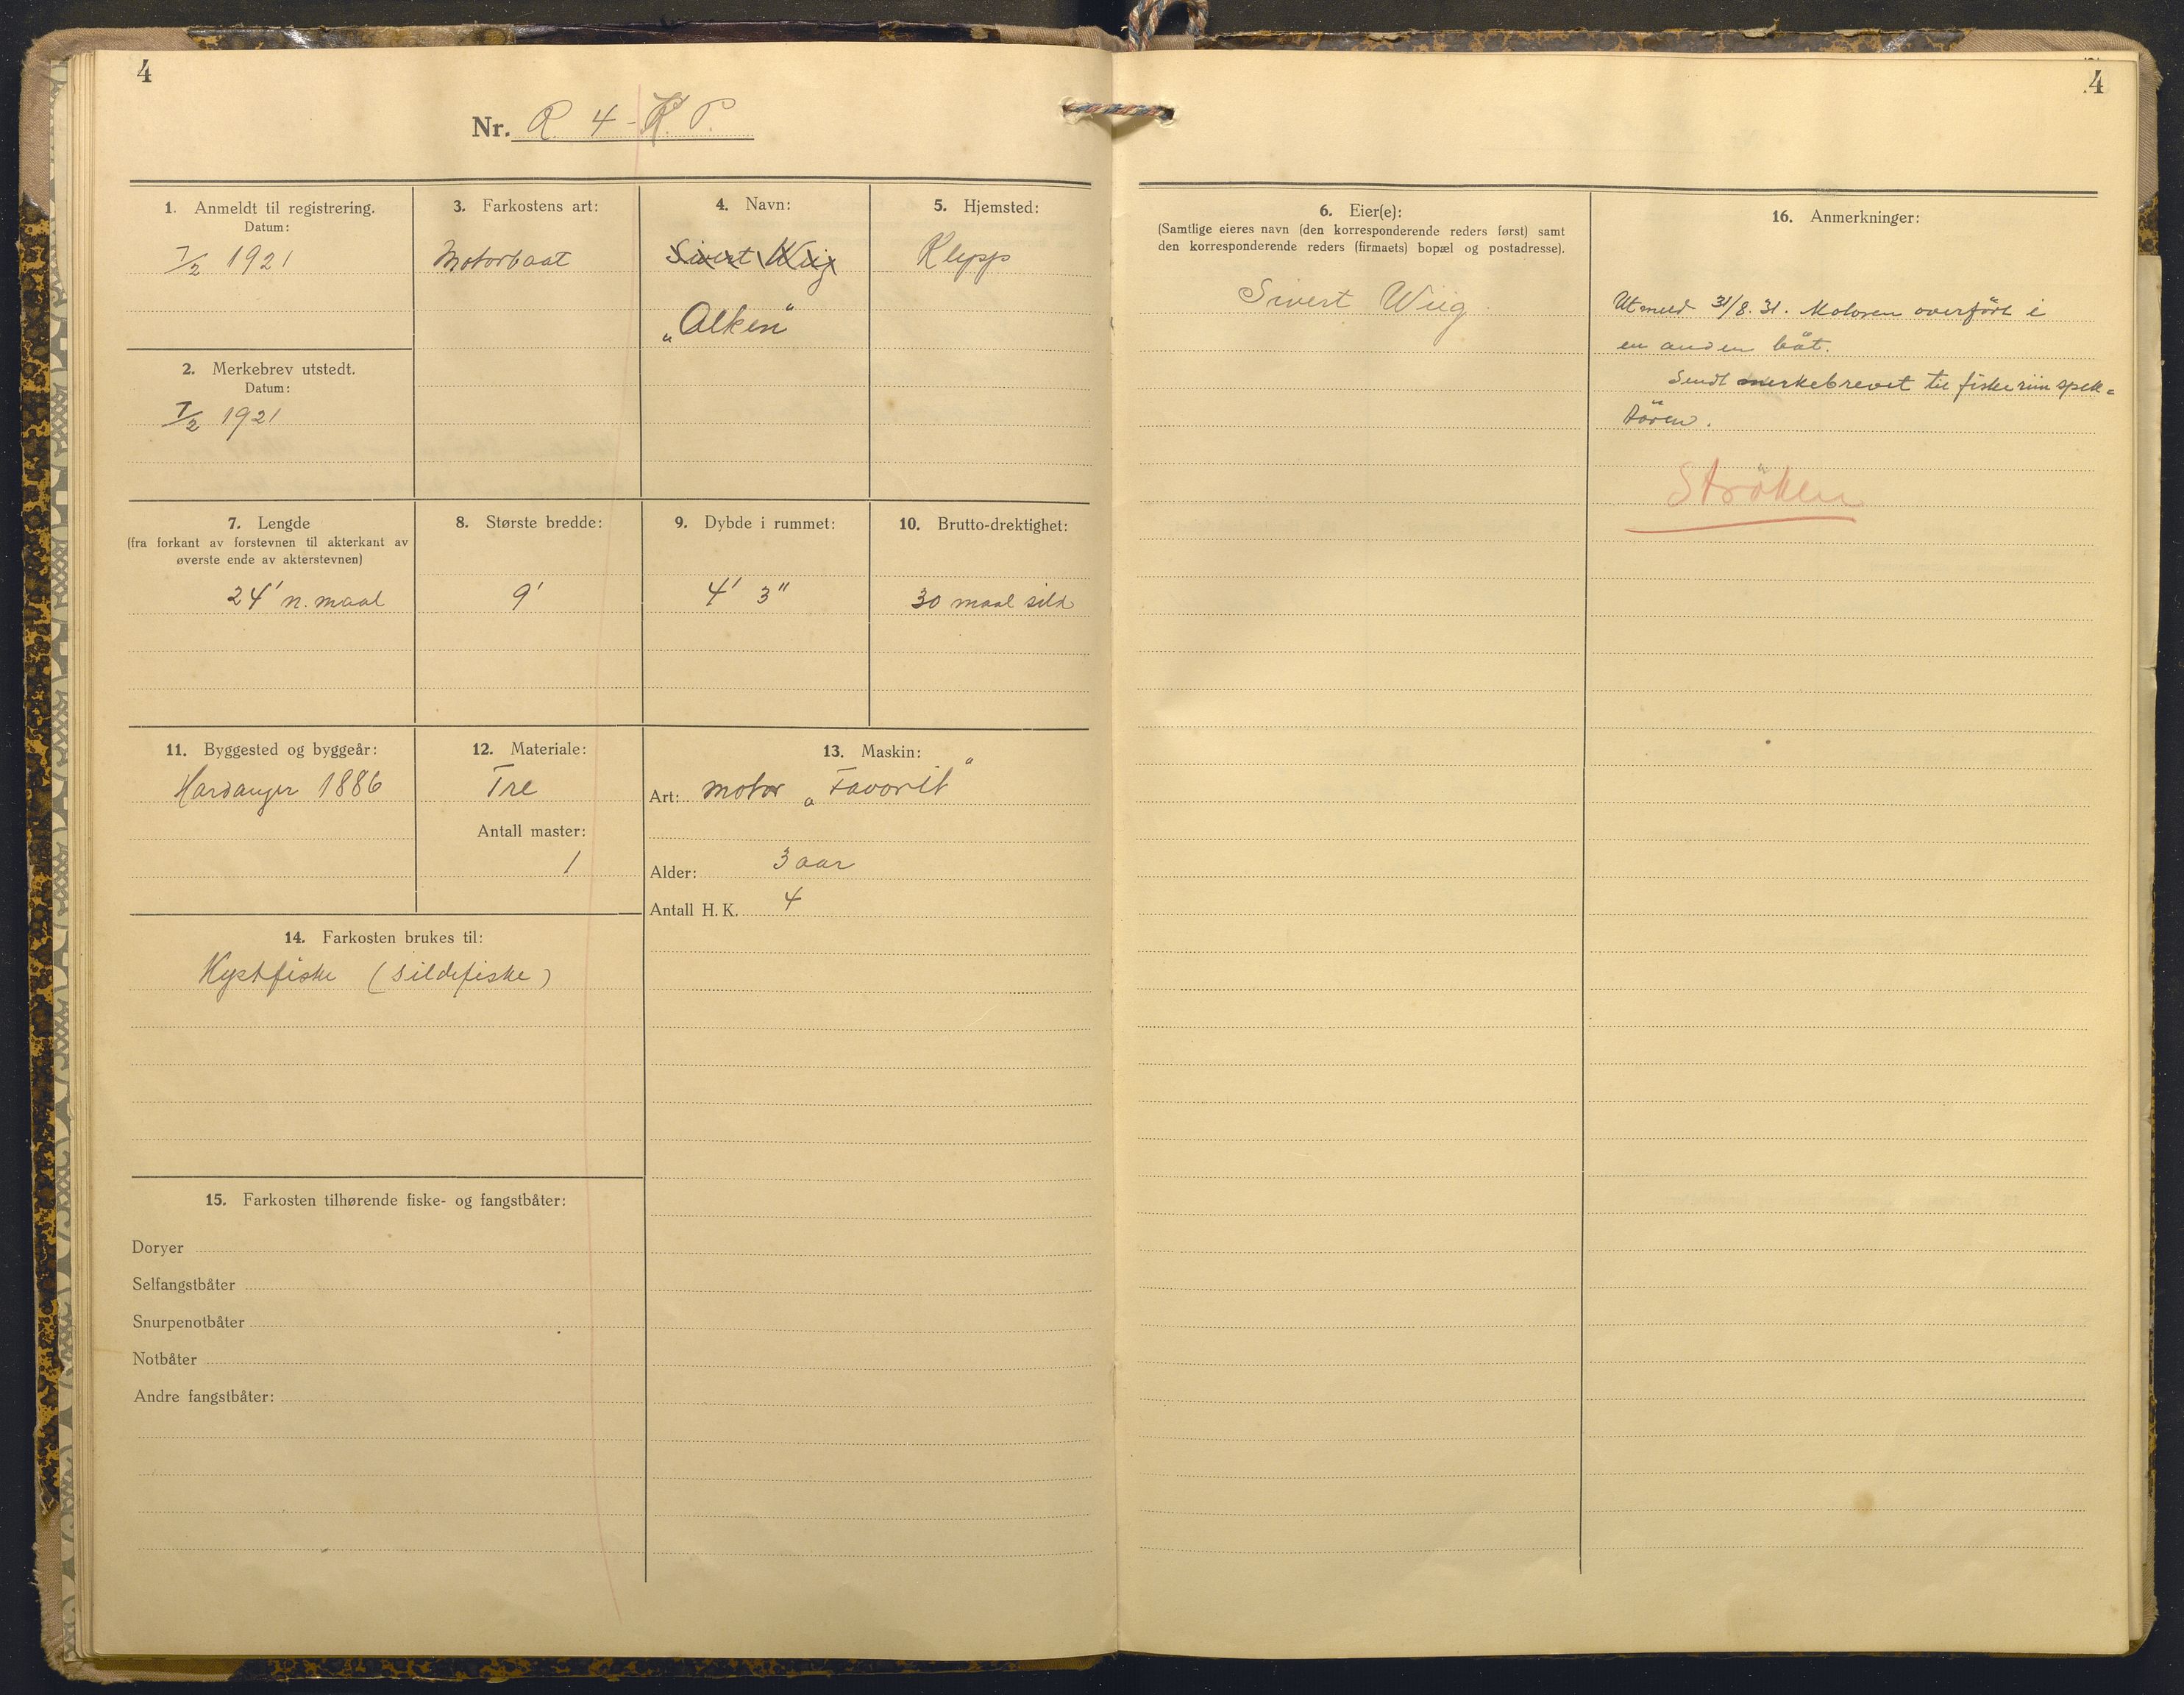 4
Nr. R 4 - K. P.
1. Anmeldt til registrering.
Datum:
7/2 1921
2. Merkebrev utstedt.
Datum:
7/2 1921
3. Farkostens art:
Motorbaat
4. Navn:
Sivert Wiig
„Alken"
5. Hjemsted:
Klepp
7. Lengde
(fra forkant av forstevnen til akterkant av
øverste ende av akterstevnen)
24' n. maal
8. Største bredde:
9'
9. Dybde i rummet:
4' 3"
10. Brutto-drektighet:
30 maal sild
11. Byggested og byggeår:
Hardanger 1886
12. Materiale:
Tre
Antall master:
1
13. Maskin:
Art: motor „Favorit"
Alder: 3 aar
Antall H. K. 4
14. Farkosten brukes til:
Kystfiske (sildefiske)
15. Farkosten tilhørende fiske- og fangstbåter:
Doryer
Selfangstbåter
Snurpenotbåter
Notbåter
Andre fangstbåter:
4
6. Eier(e):
(Samtlige eieres navn (den korresponderende reders først) samt
den korresponderende reders (firmaets) bopæl og postadresse).
Sivert Wiig
16. Anmerkninger:
Utmeld 31/8. 31. Motoren overført i
en anden båt.
Sendt merkebrevet til fiskeriinspek=
tören.
Ströken